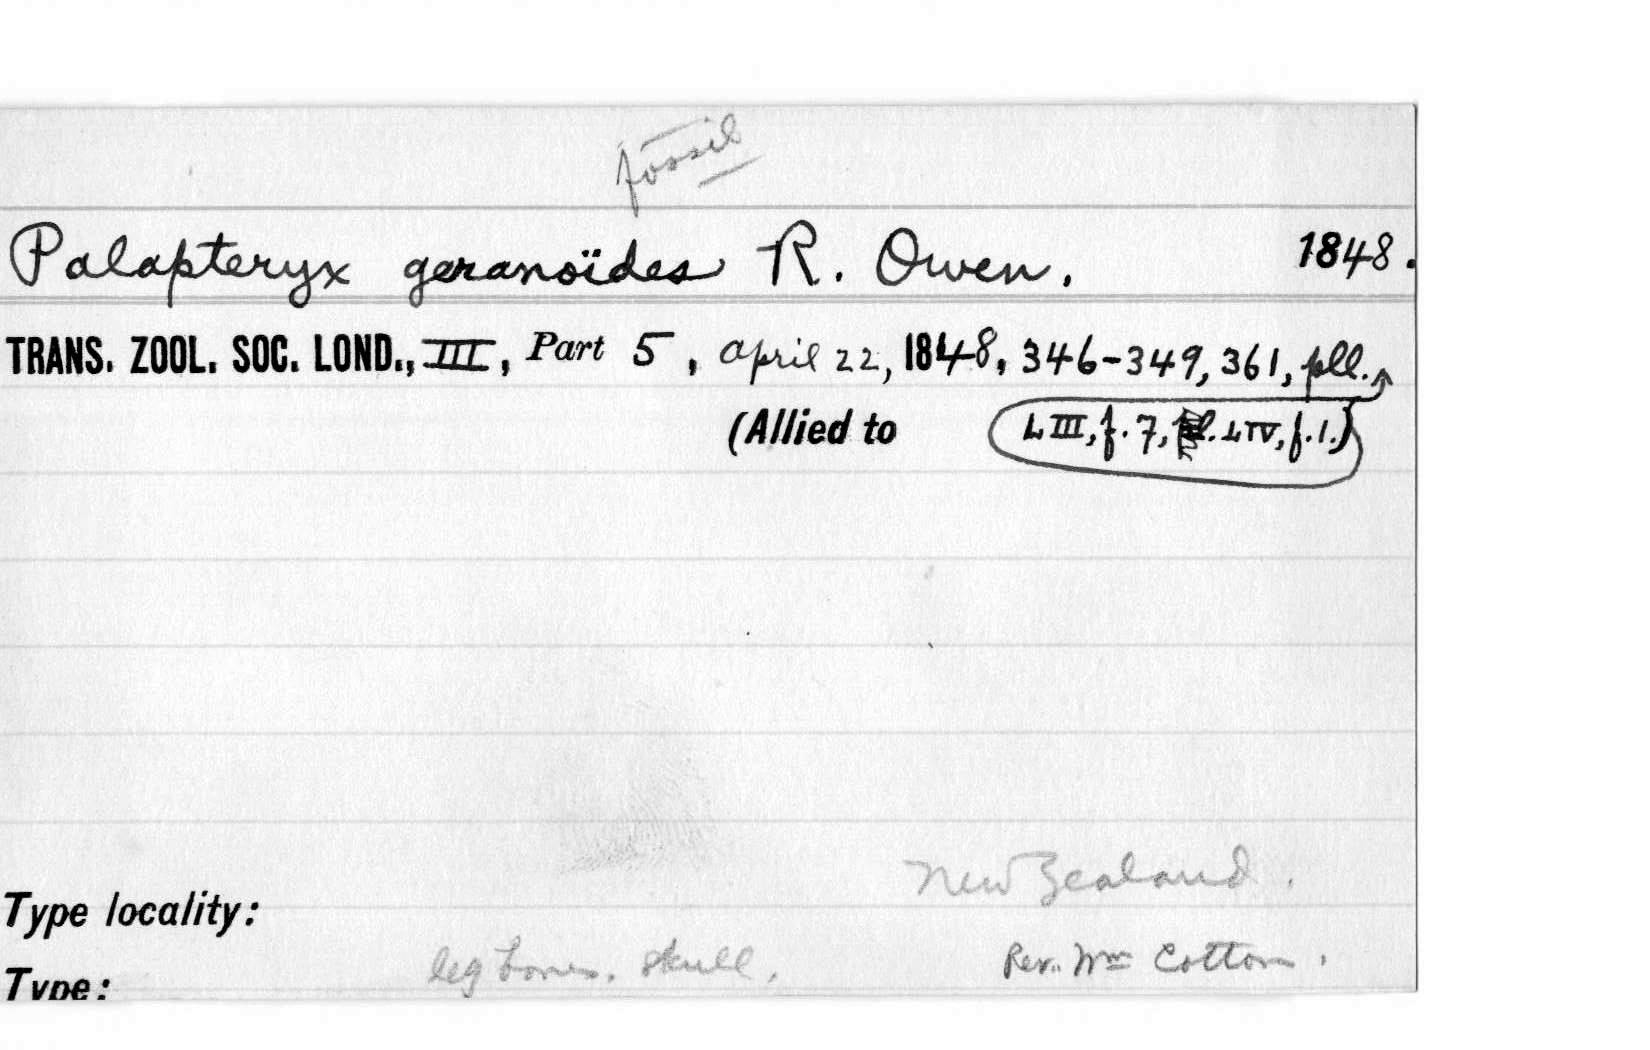 fossil
Palapteryx geranoïdes R. Owen. 1848.
TRANS. ZOOL. SOC. LOND., III, Part 5, April 22, 1848, 346-349, 361, pll.
(Allied to LIII, f. 7, LIV, f. 1.)
New Zealand.
Type locality:
leg bones. skull. Rev. Wm Cotton.
Type: